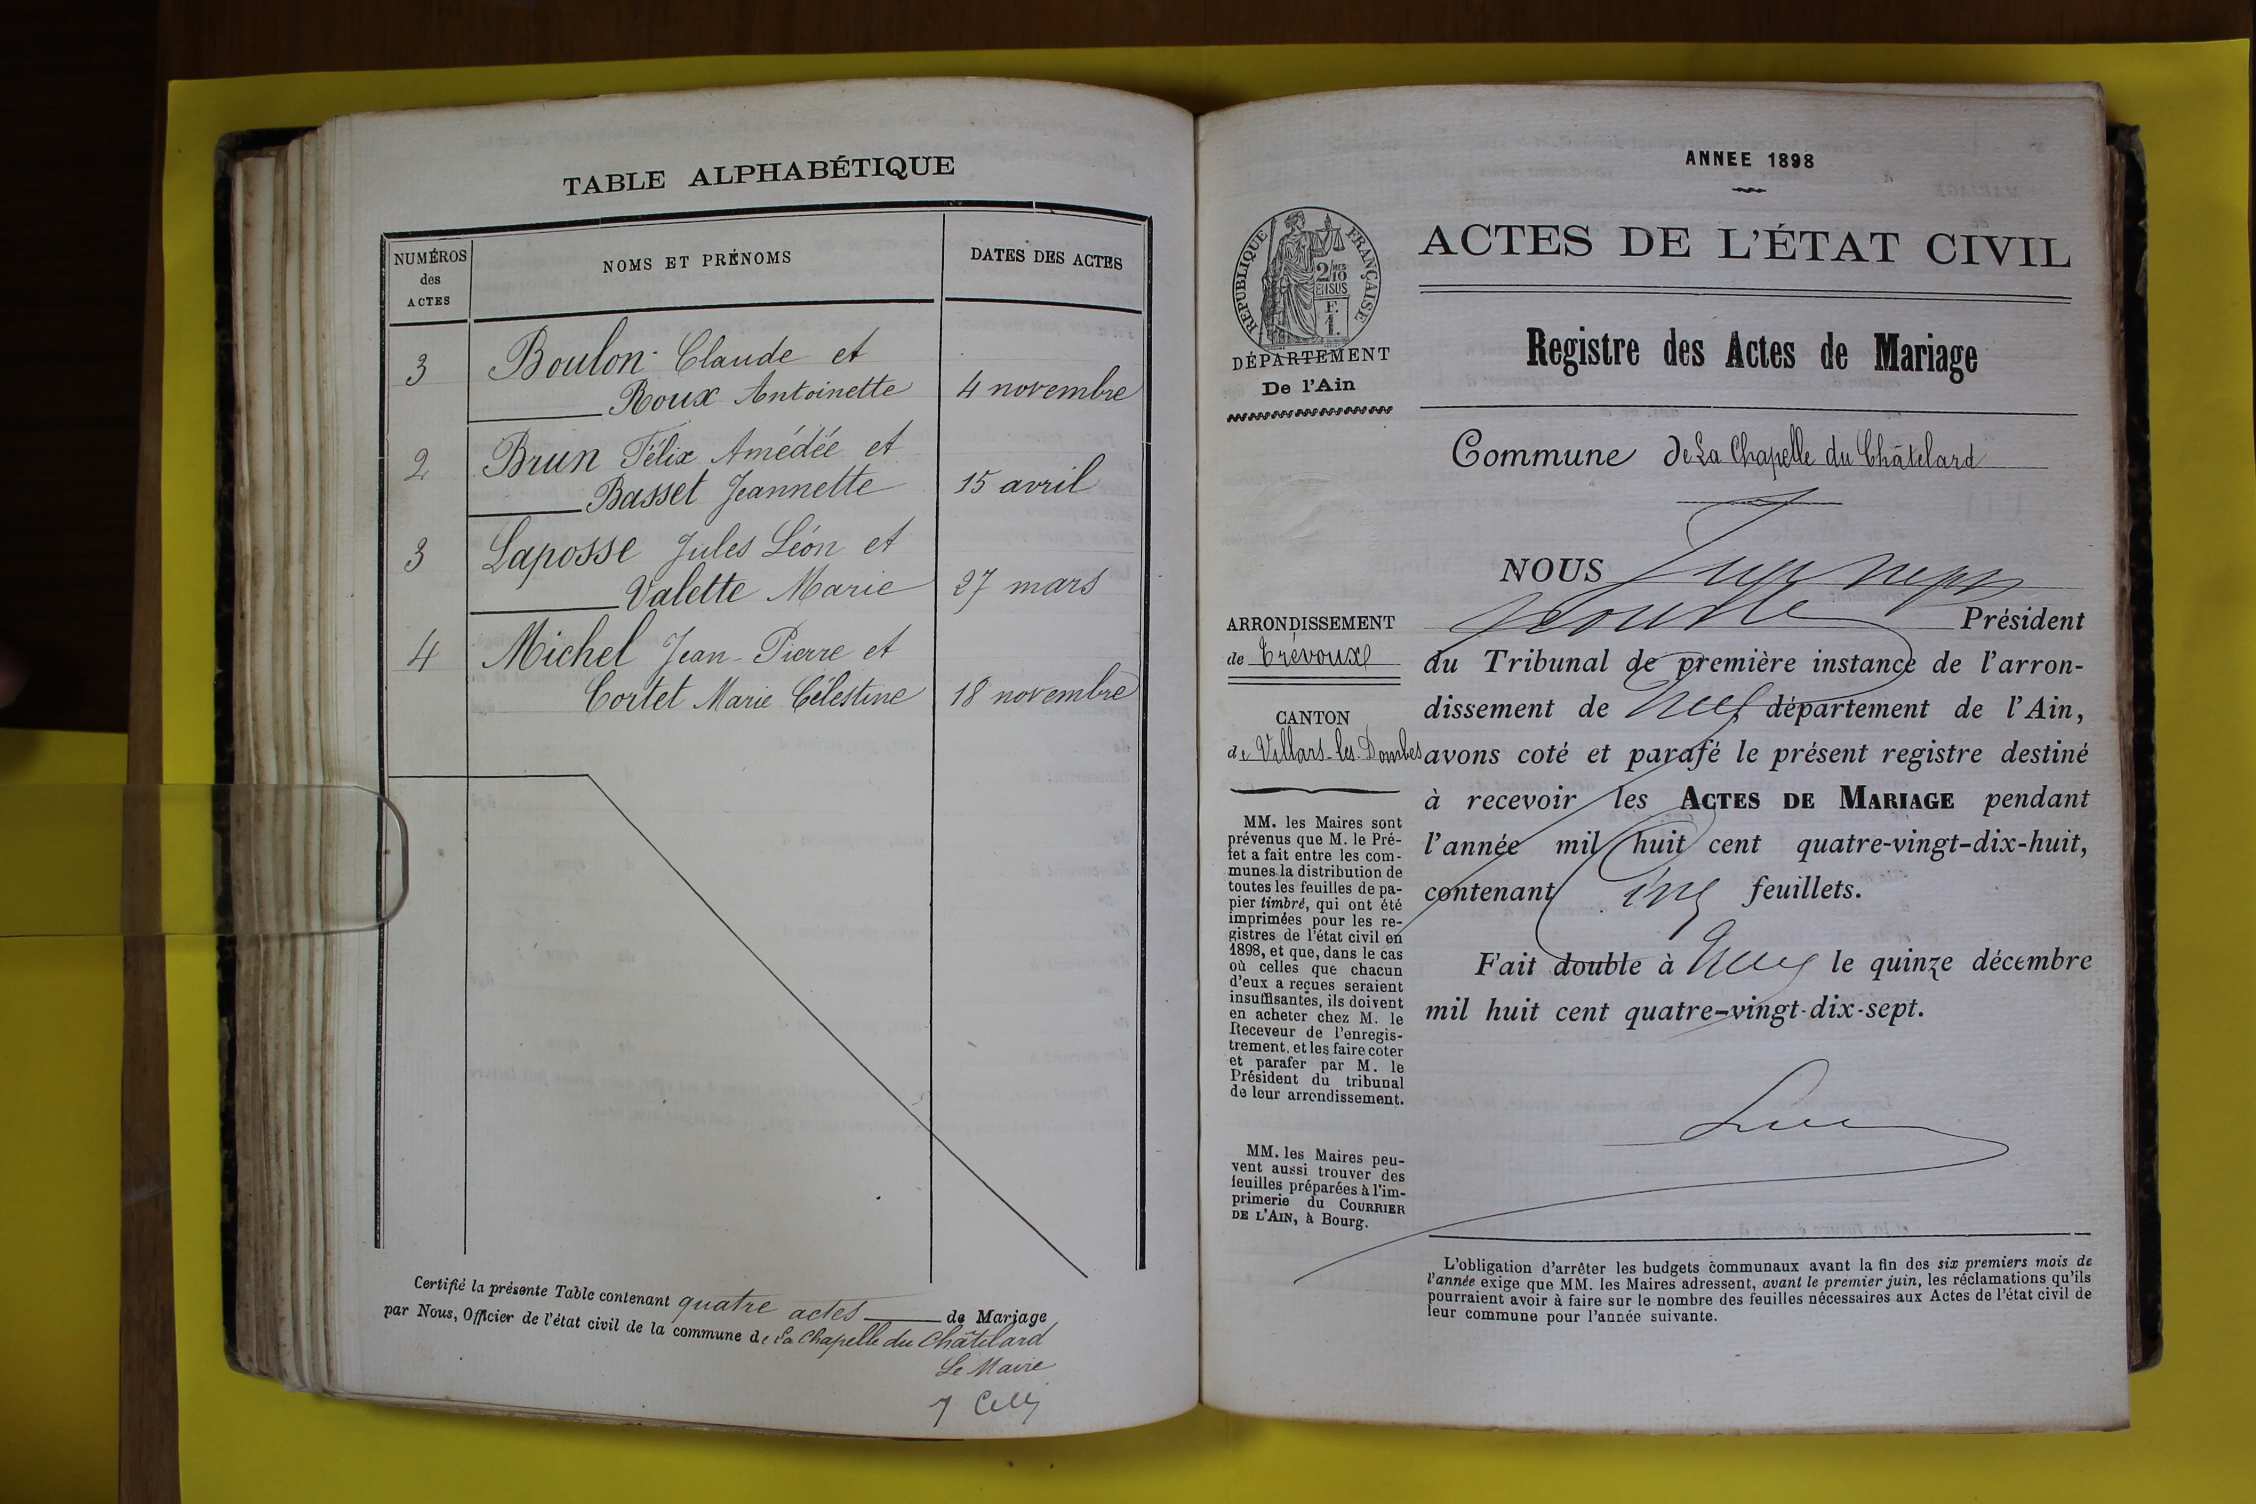 TABLE ALPHABÉTIQUE
NUMÉROS
des
ACTES
NOMS ET PRÉNOMS
DATES DES ACTES
3 Boulon Claude et
Roux Antoinette 4 novembre
2 Brun Félix Amédée et
Basset Jeannette 15 avril
3 Laposse Jules Léon et
Valette Marie 27 mars
4 Michel Jean-Pierre et
Cortet Marie Célestine 18 novembre
Certifié la présente Table contenant quatre actes de Mariage
par Nous, Officier de l'état civil de la commune de La Chapelle du Châtelard
Le Maire
ANNEE 1898
ACTES DE L'ÉTAT CIVIL
Registre des Actes de Mariage
RÉPUBLIQUE FRANÇAISE
2/10
EN SUS
F.
1.
DÉPARTEMENT
De l'Ain
Commune de La Chapelle du Châtelard
NOUS
Président
ARRONDISSEMENT
de Trévoux
CANTON
de Villars-les-Dombes
du Tribunal de première instance de l'arron-
dissement de département de l'Ain,
avons coté et parafé le présent registre destiné
à recevoir les ACTES DE MARIAGE pendant
l'année mil huit cent quatre-vingt-dix-huit,
contenant cinq feuillets.
Fait double à le quinze décembre
mil huit cent quatre-vingt-dix-sept.
MM. les Maires sont
prévenus que M. le Pré-
fet a fait entre les com-
munes la distribution de
toutes les feuilles de pa-
pier timbré, qui ont été
imprimées pour les re-
gistres de l'état civil en
1898, et que, dans le cas
où celles que chacun
d'eux a reçues seraient
insuffisantes, ils doivent
en acheter chez M. le
Receveur de l'enregis-
trement, et les faire coter
et parafer par M. le
Président du tribunal
de leur arrondissement.
MM. les Maires peu-
vent aussi trouver des
feuilles préparées à l'im-
primerie du COURRIER
DE L'AIN, à Bourg.
L'obligation d'arrêter les budgets communaux avant la fin des six premiers mois de
l'année exige que MM. les Maires adressent, avant le premier juin, les réclamations qu'ils
pourraient avoir à faire sur le nombre des feuilles nécessaires aux Actes de l'état civil de
leur commune pour l'année suivante.